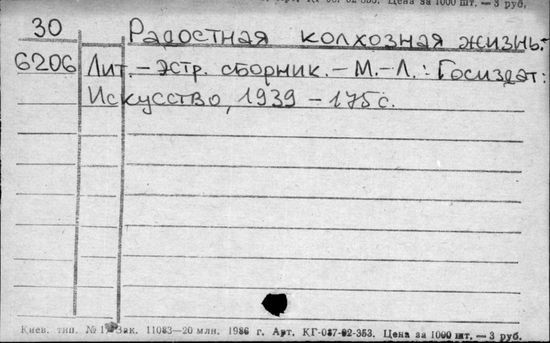 Цена за 1000 шт. — 3 руб.
30 Радостная колхозная жизнь.-
6206 Лит.- эстр. сборник.- М.-Л.: Госиздат:
Искусство, 1939 - 175 с.
Киев. тип. Зак. 11083—20 млн. 1986 г. Арт. КГ-037-02-353. Цена за 1000 шт. — 3 руб.